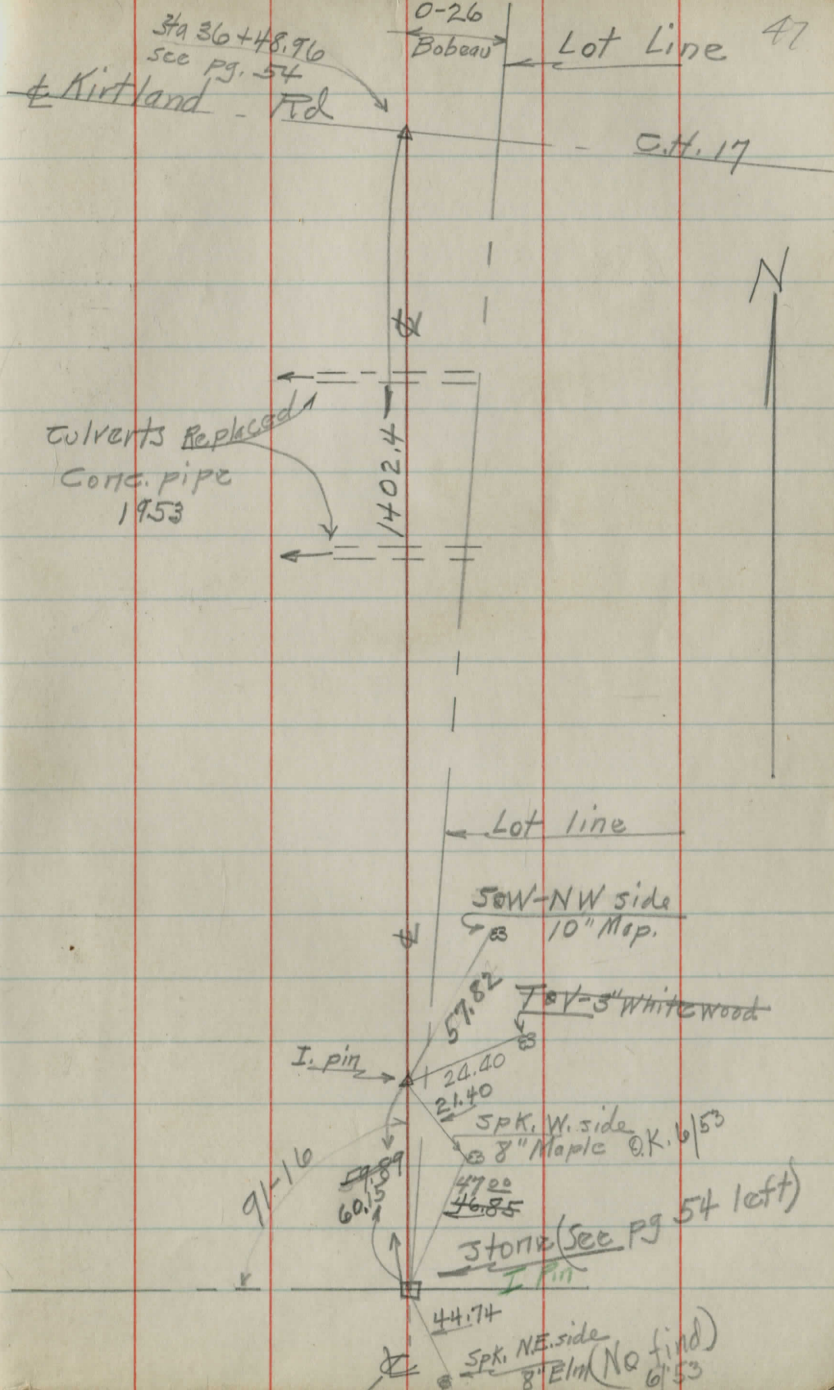 47
0-26
Bobeau
Sta 36+48.96
see pg. 54
Lot Line
℄ Kirtland Rd
C.H. 17
N
℄
Culverts Replaced
Conc. pipe
1953
1402.4
Lot line
℄
NW side
10" Map.
57.82
Whitewood
I. pin
24.40
21.40
Spk. W. side
8" Maple O.K. 6/53
91-16
59.89
60.15
47.00
46.85
Stone (See pg 54 left)
I Pin
44.74
Spk. N.E. side
8" Elm (No find)
6/53
℄